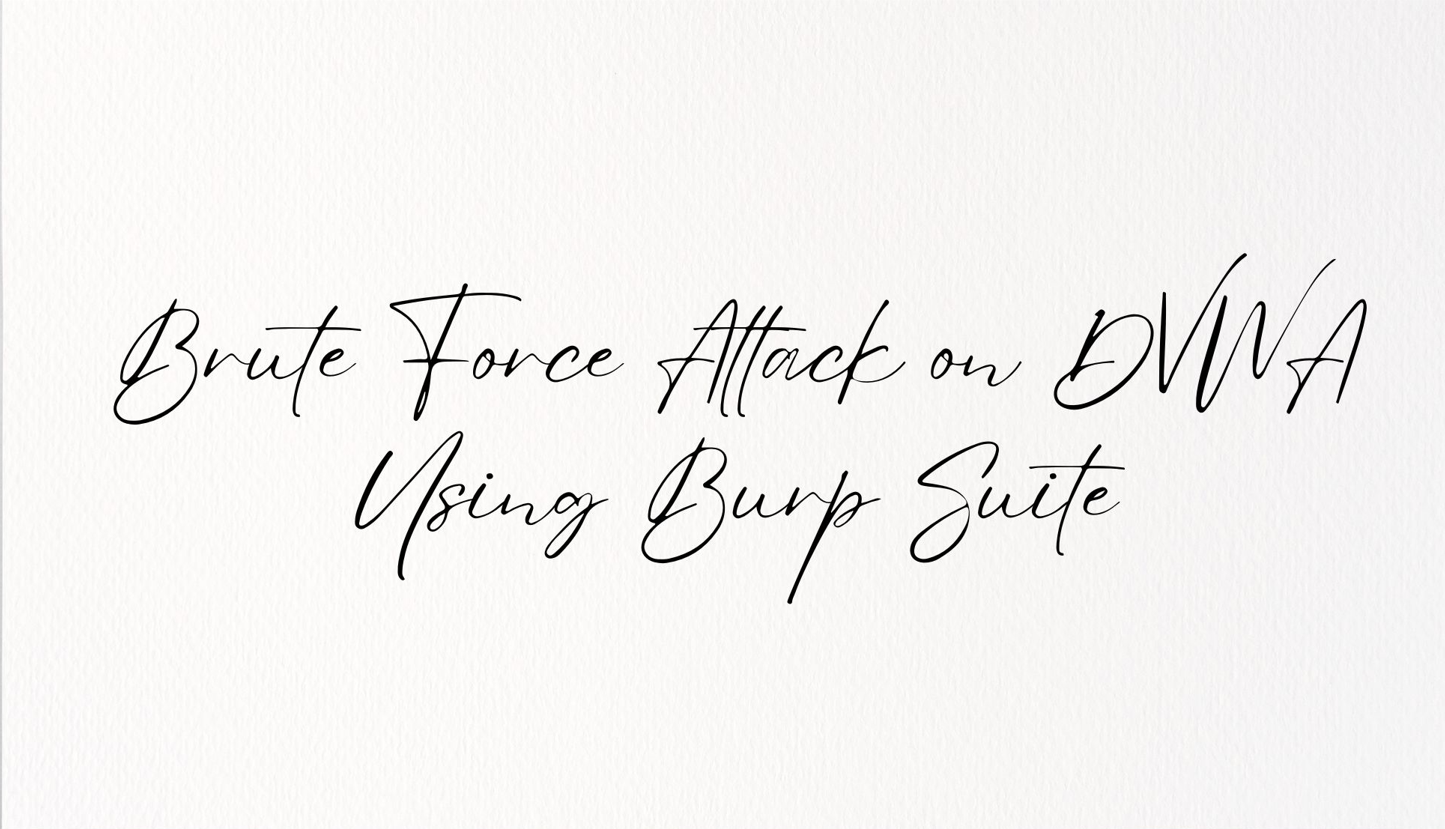 Brute Force Attack on DVWA
Using Burp Suite